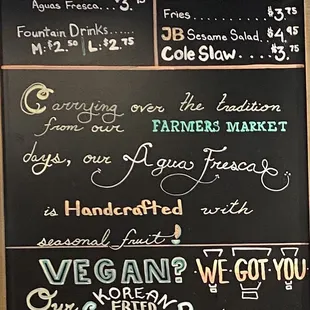 Aguas Fresca... 3.75
Fountain Drinks......
M: $2.50 | L: $2.75
Fries ............ $3.75
JB Sesame Salad. $4.95
Cole Slaw....... $3.75
Carrying over the tradition
from our FARMERS MARKET
days, our Agua Frescas
is Handcrafted with
seasonal fruit!
VEGAN? WE GOT YOU
Our KOREAN
FRIED